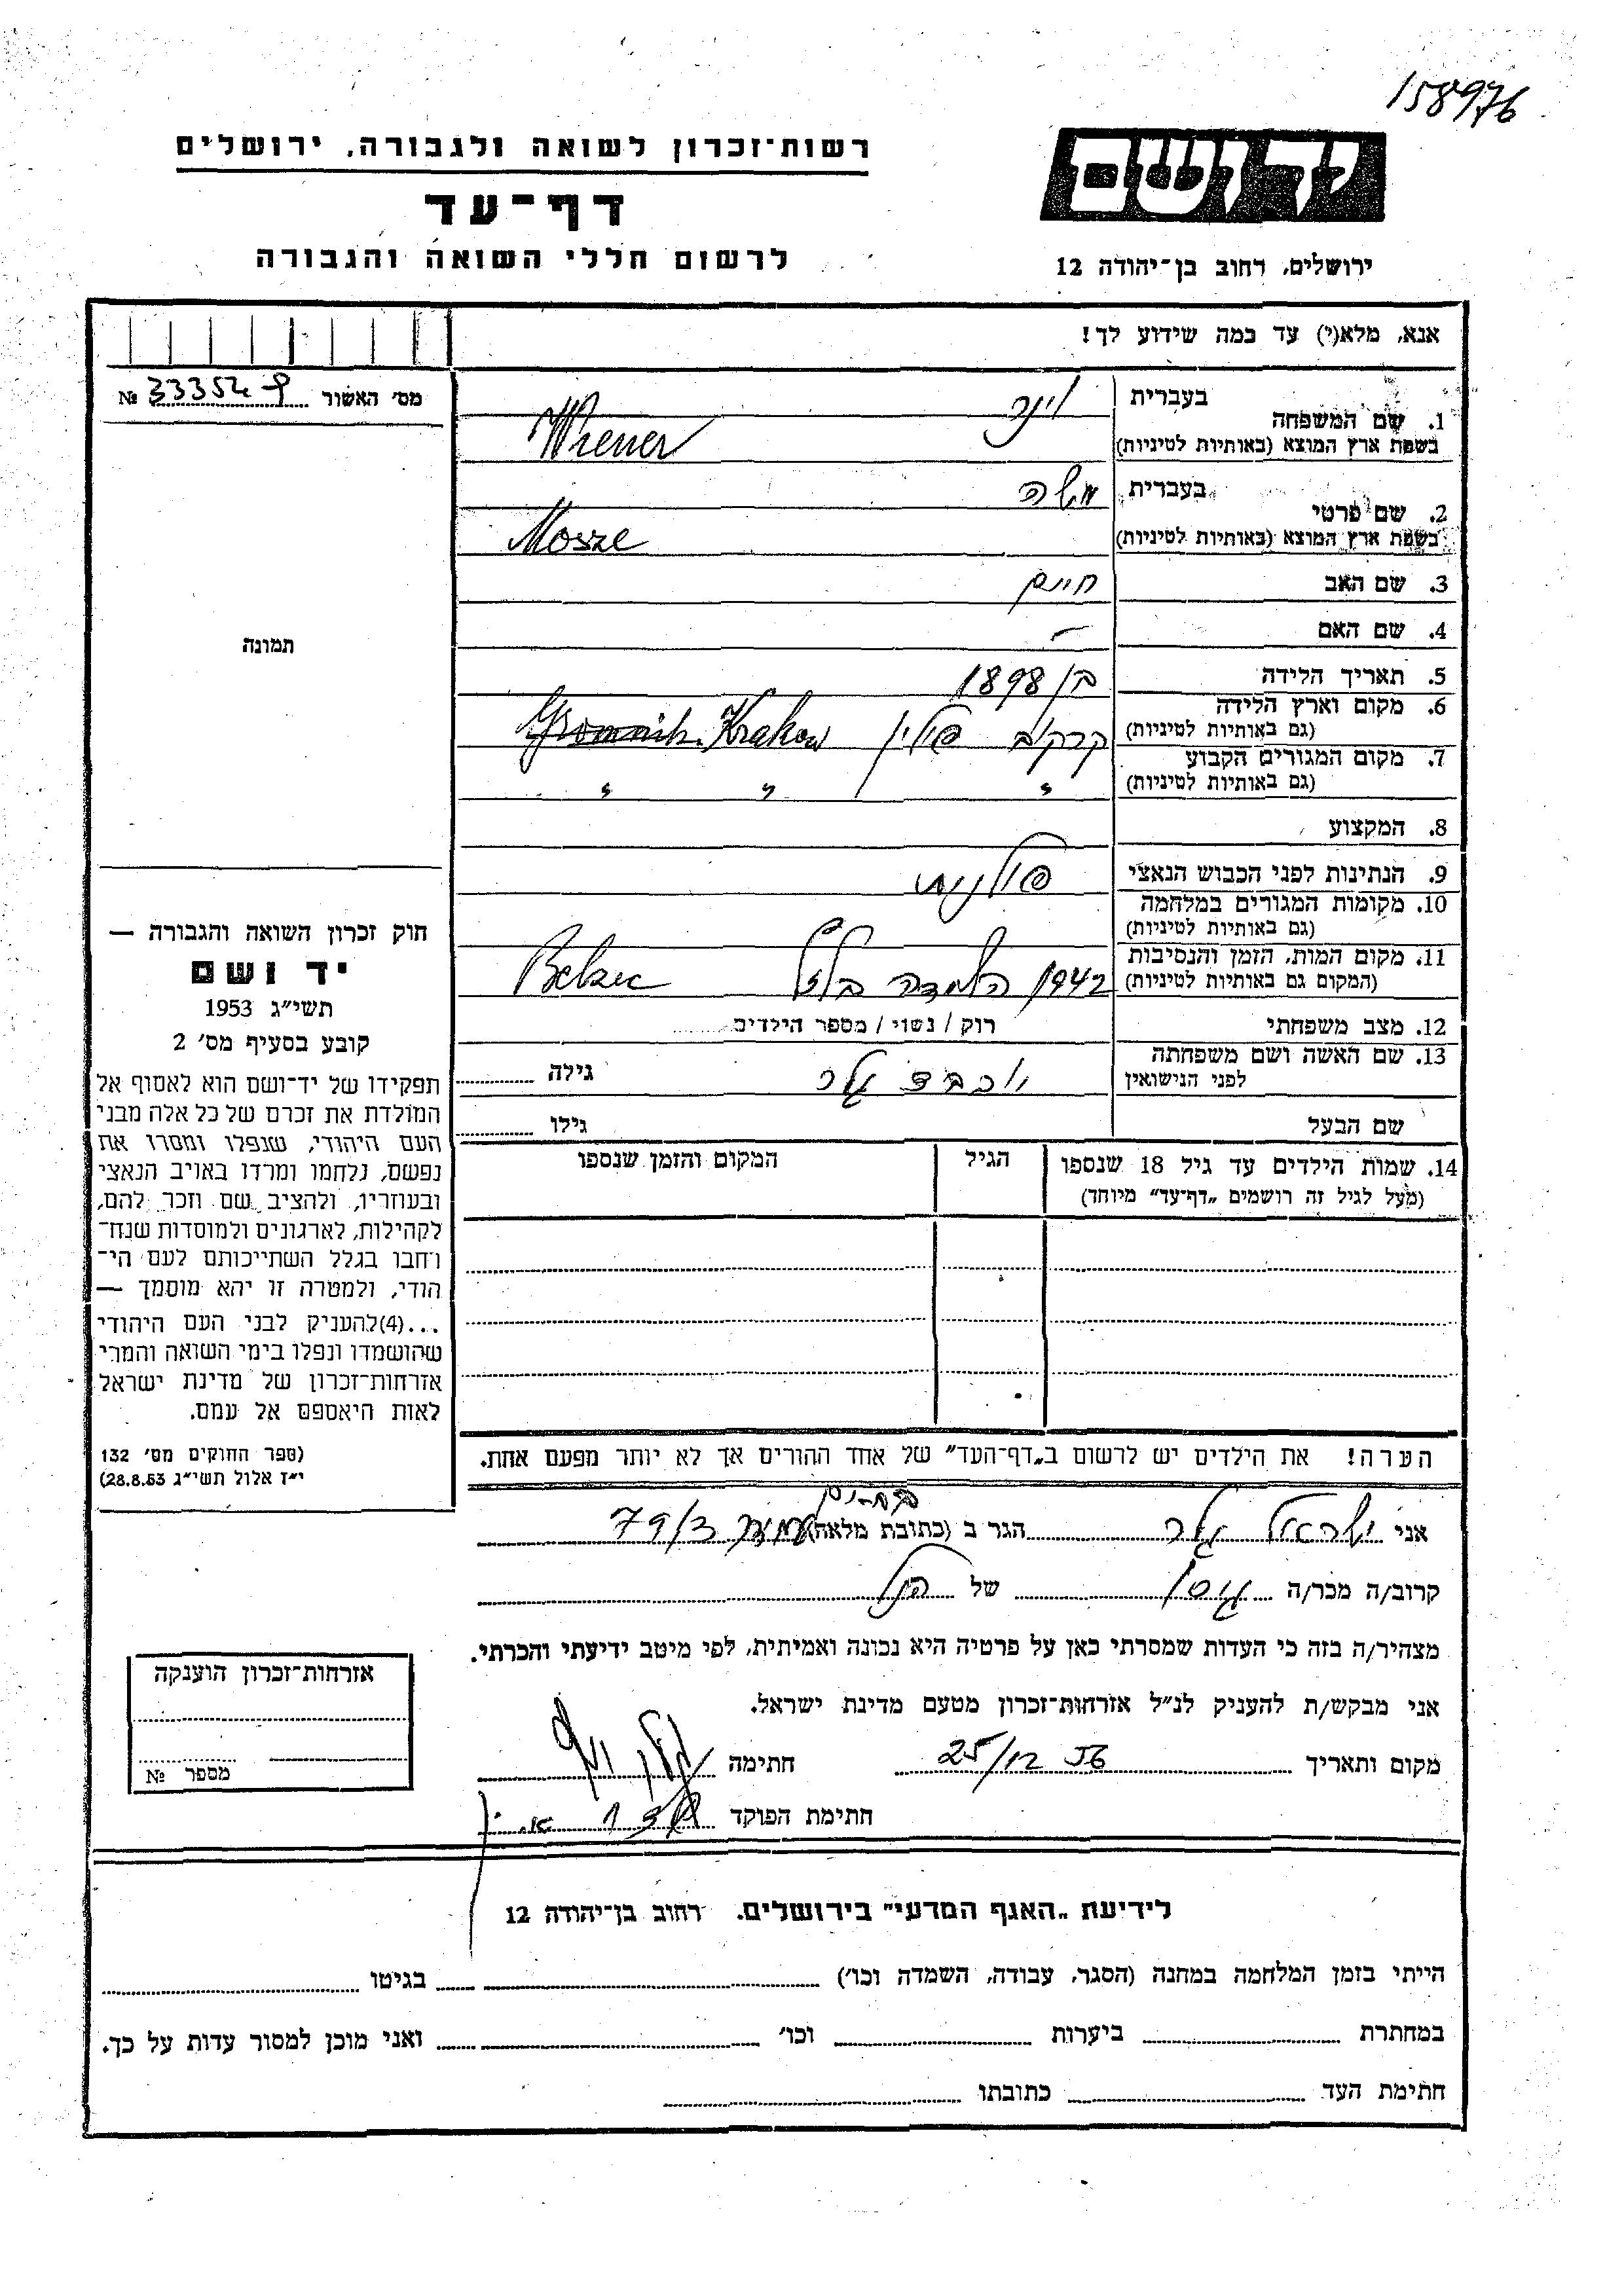 158976
יד ושם
ירושלים, רחוב בן־יהודה 12
רשות־זכרון לשואה ולגבורה, ירושלים
דף־עד
לרשום חללי השואה והגבורה
אנא, מלא(י) עד כמה שידוע לך!
מס׳ האשור 33354 № 
1. שם המשפחה בעברית וינר
בשפת ארץ המוצא (באותיות לטיניות) Wiener
2. שם פרטי בעברית משה
בשפת ארץ המוצא (באותיות לטיניות) Mosze
3. שם האב חיים
4. שם האם –
5. תאריך הלידה 1898
6. מקום וארץ הלידה
(גם באותיות לטיניות) קרקוב פולין Krakow
7. מקום המגורים הקבוע
(גם באותיות לטיניות) " " "
8. המקצוע
9. הנתינות לפני הכבוש הנאצי פולנית
10. מקומות המגורים במלחמה
(גם באותיות לטיניות)
11. מקום המות, הזמן והנסיבות
(המקום גם באותיות לטיניות) 1942 השמדה בלזץ Belzec
12. מצב משפחתי רוק / נשוי / מספר הילדים
13. שם האשה ושם משפחתה
לפני הנישואין גילה
שם הבעל גילו
14. שמות הילדים עד גיל 18 שנספו הגיל המקום והזמן שנספו
(מעל לגיל זה רושמים „דף־עד” מיוחד)
הערה! את הילדים יש לרשום ב„דף־העד” של אחד ההורים אך לא יותר מפעם אחת.
תמונה
חוק זכרון השואה והגבורה —
יד ושם
תשי״ג 1953
קובע בסעיף מס׳ 2
תפקידו של יד־ושם הוא לאסוף אל
המולדת את זכרם של כל אלה מבני
העם היהודי, שנפלו ומסרו את
נפשם, נלחמו ומרדו באויב הנאצי
ובעוזריו, ולהציב שם וזכר להם,
לקהילות, לארגונים ולמוסדות שנח־
רבו בגלל השתייכותם לעם הי־
הודי, ולמטרה זו יהא מוסמך —
...(4)להעניק לבני העם היהודי
שהושמדו ונפלו בימי השואה והמרי
אזרחות־זכרון של מדינת ישראל
לאות היאספם אל עמם.
(ספר החוקים מס׳ 132
י״ז אלול תשי״ג 28.8.53)
אני ישראל הגר ב (כתובת מלאה) 79/3
קרוב/ה מכר/ה גיסו של הנ״ל
מצהיר/ה בזה כי העדות שמסרתי כאן על פרטיה היא נכונה ואמיתית, לפי מיטב ידיעתי והכרתי.
אני מבקש/ת להעניק לנ״ל אזרחות־זכרון מטעם מדינת ישראל.
מקום ותאריך 25/12 56 חתימה
חתימת הפוקד
אזרחות־זכרון הוענקה
מספר №
לידיעת „האגף המדעי” בירושלים. רחוב בן־יהודה 12
הייתי בזמן המלחמה במחנה (הסגר, עבודה, השמדה וכו׳) בגיטו
במחתרת ביערות וכו׳ ואני מוכן למסור עדות על כך.
חתימת העד כתובתו